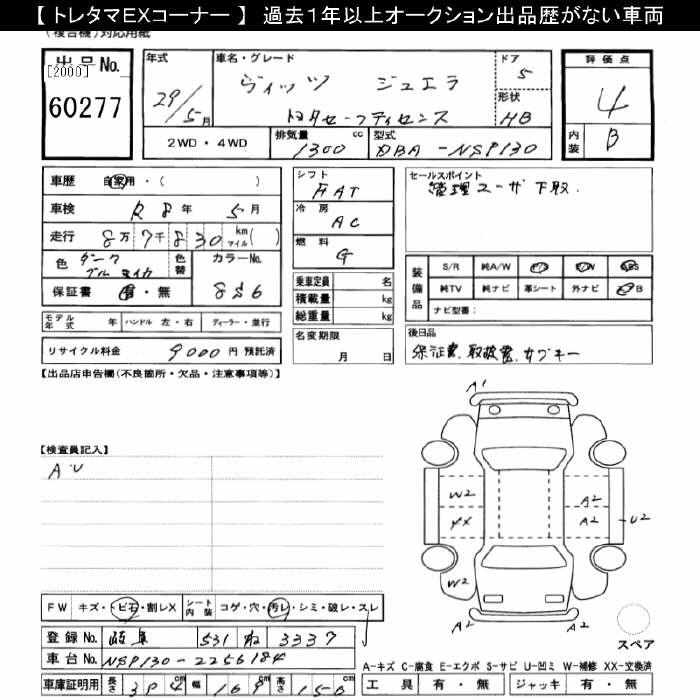 【 トレタマEXコーナー 】 過去１年以上オークション出品歴がない車両
(複合機)対応用紙
出品No.
[2000]
60277
年式
29/5月
車名・グレード
ヴィッツ ジュエラ
トヨタセーフティセンス
ドア
5
形状
HB
2WD・4WD
排気量
1300 cc
型式
DBA-NSP130
評価点
4
内装
B
車歴 自家用・( )
車検 R8年 5月
走行 8万7千830 km マイル( )
色 ダークブルーマイカ 色替 カラーNo. 8S6
保証書 有・無
モデル年式 年 ハンドル 左・右 ディーラー・並行
リサイクル料金 9000円 預託済
シフト
FAT
冷房
AC
燃料
G
乗車定員 名
積載量 kg
総重量 kg
名変期限
月 日
セールスポイント
管理ユーザ下取.
装備品
S/R 純A/W P/S P/W ABS
純TV 純ナビ 革シート 外ナビ B
ナビ型番：
後日品
保証書、取扱書、サブキー
【出品店申告欄(不良箇所・欠品・注意事項等)】
【検査員記入】
AU
A1
W2
XX
W2
A2
A2
A2
U2
A2
A2
スペア
FW キズ・トビ石・割レX シート内装 コゲ・穴・汚レ・シミ・破レ・スレ
登録No. 岐阜 531 ね 3337
車台No. NSP130-2256184
車庫証明用 長さ 394cm 幅 169cm 高さ 150cm
A-キズ C-腐食 E-エクボ S-サビ U-凹ミ W-補修 XX-交換済
工具 有・無 ジャッキ 有・無